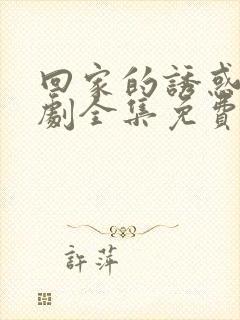 回家的誘惑
劇全集免費
許萍